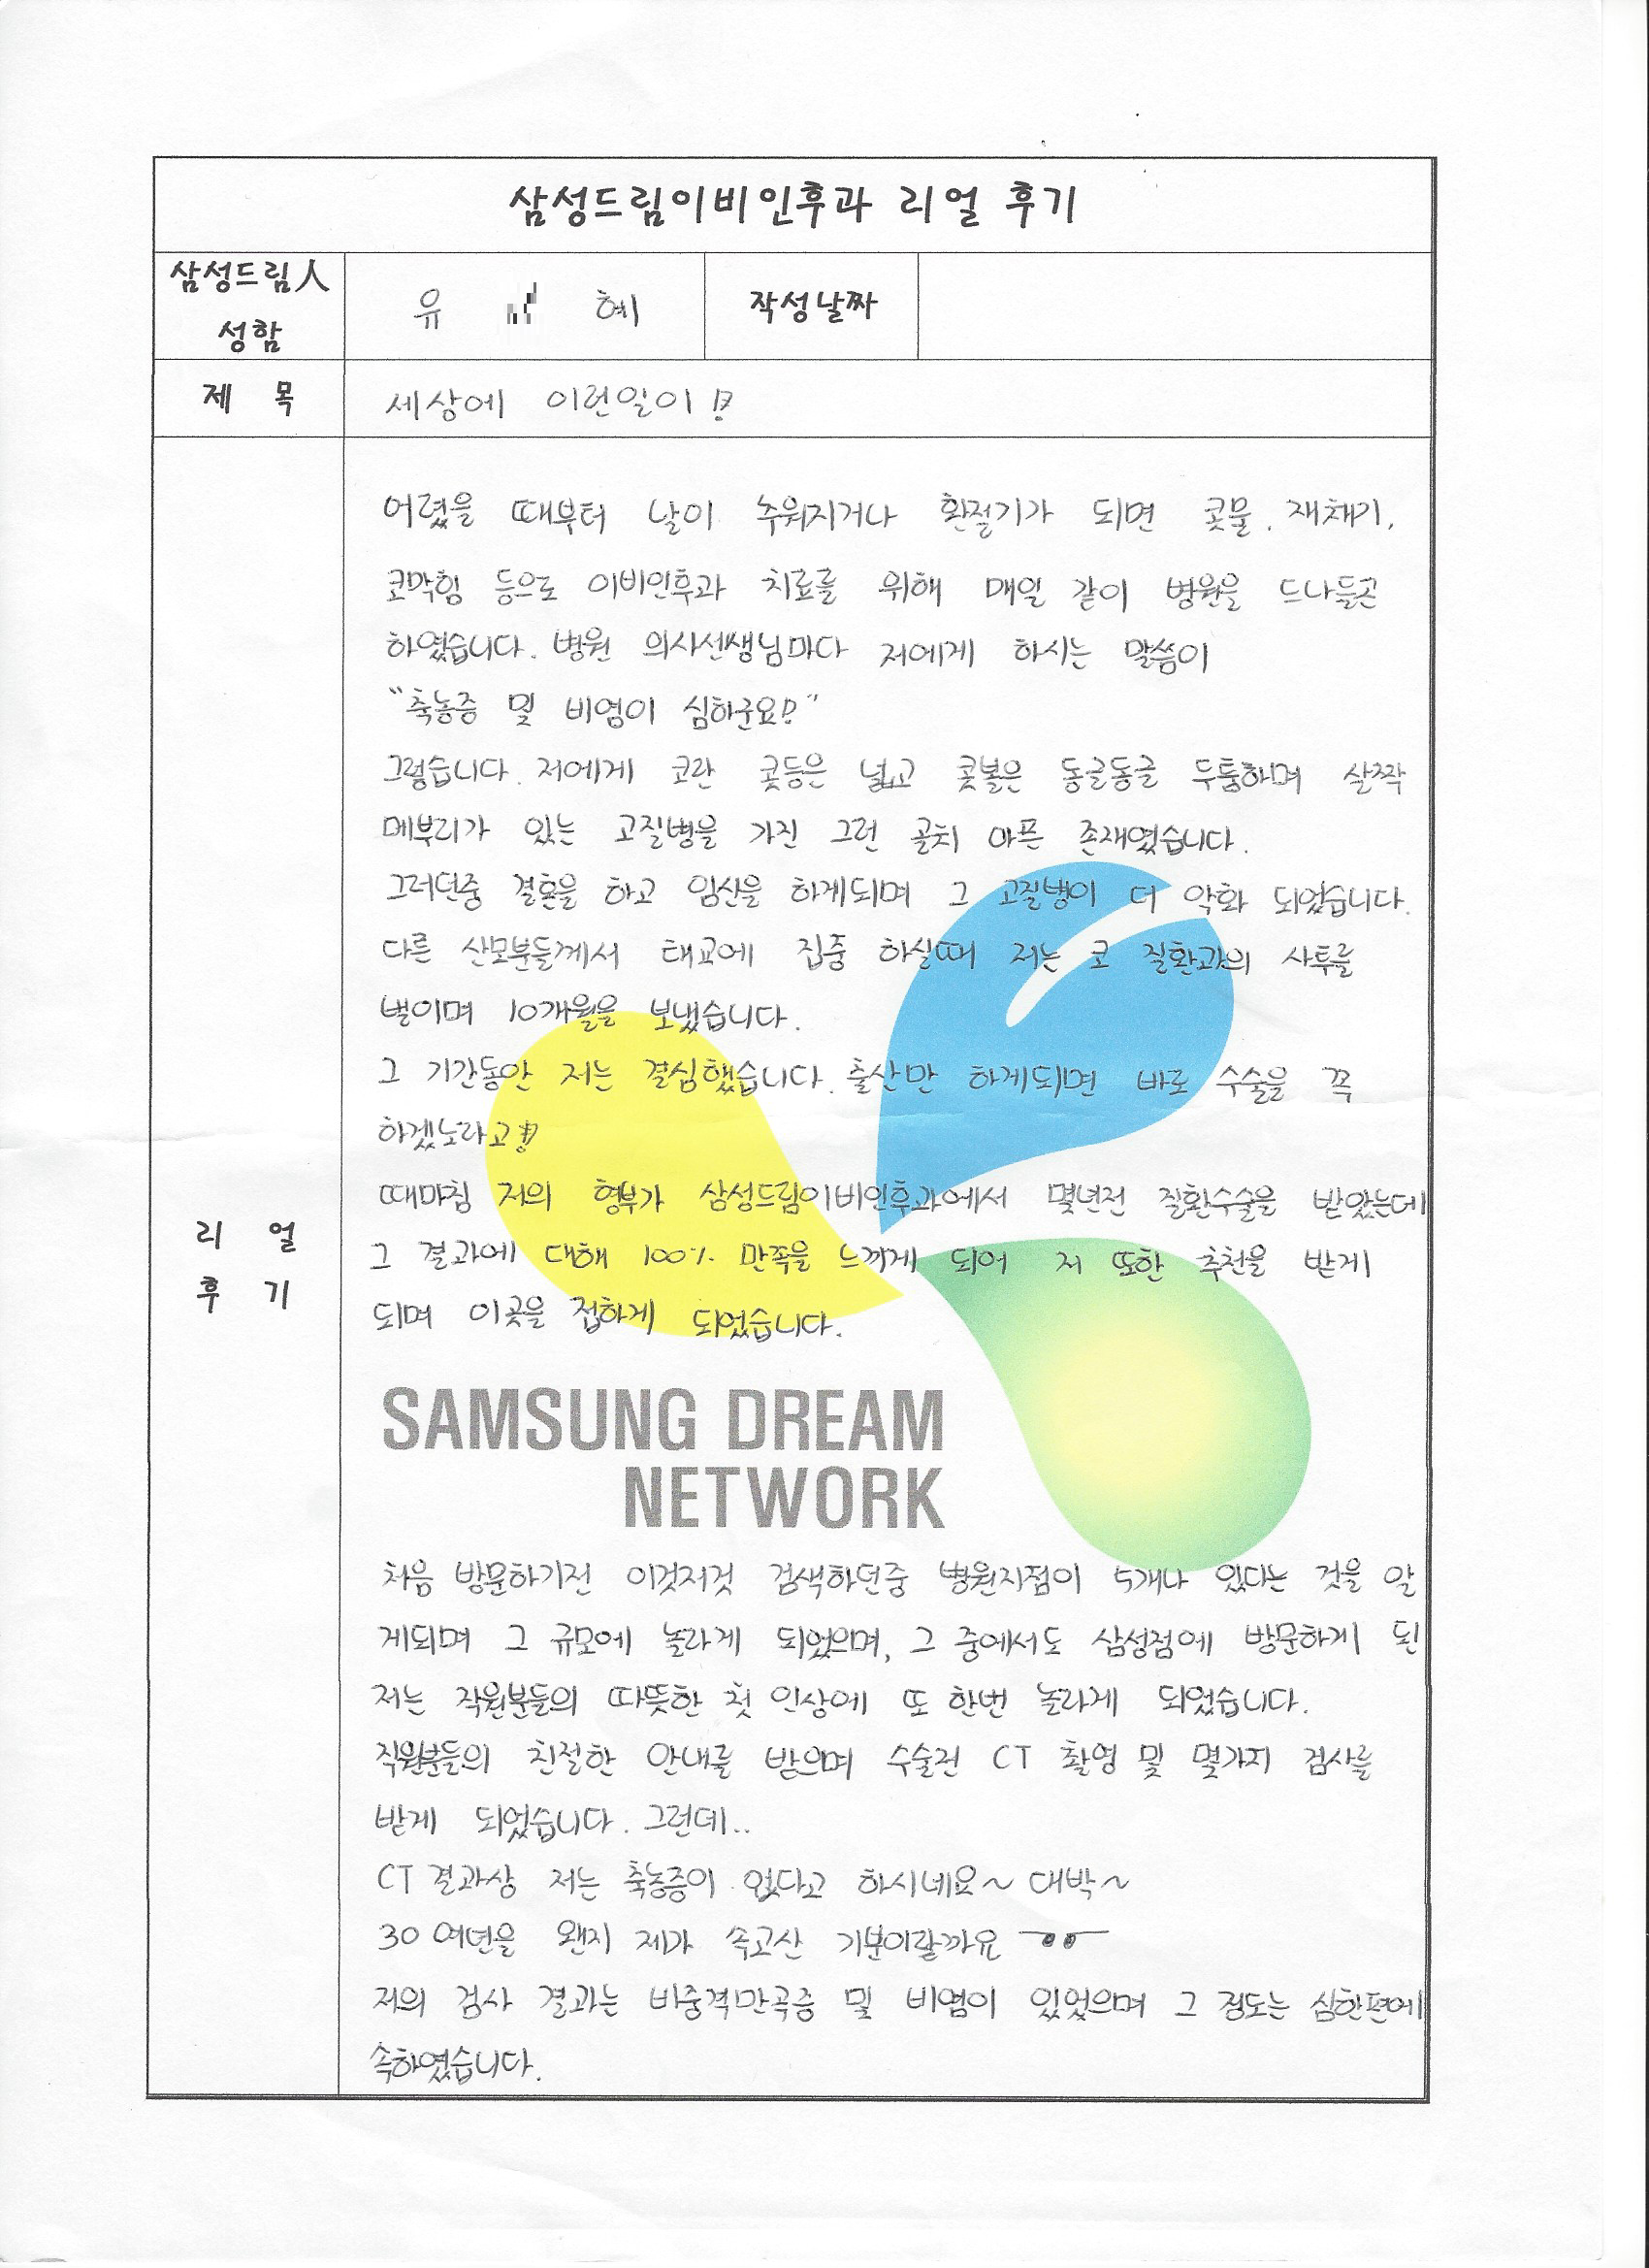 삼성드림이비인후과 리얼 후기
삼성드림人
성함
유 혜
작성날짜
제 목
세상에 이런일이!?
어렸을 때부터 날이 추워지거나 환절기가 되면 콧물, 재채기,
코막힘 등으로 이비인후과 치료를 위해 매일 같이 병원을 드나들곤
하였습니다. 병원 의사선생님마다 저에게 하시는 말씀이
"축농증 및 비염이 심하군요!?"
그렇습니다. 저에게 코란 콧등은 넓고 콧볼은 동글동글 두툼하며 살짝
메부리가 있는 고질병을 가진 그런 골치 아픈 존재였습니다.
그러던중 결혼을 하고 임신을 하게되며 그 고질병이 더 악화 되었습니다.
다른 산모분들께서 태교에 집중 하실때 저는 코 질환과의 사투를
벌이며 10개월을 보냈습니다.
그 기간동안 저는 결심했습니다. 출산만 하게되면 바로 수술을 꼭
하겠노라고!!
때마침 저의 형부가 삼성드림이비인후과에서 몇년전 질환수술을 받았는데
그 결과에 대해 100% 만족을 느끼게 되어 저 또한 추천을 받게
되며 이곳을 접하게 되었습니다.
SAMSUNG DREAM
NETWORK
리 얼
후 기
처음 방문하기전 이것저것 검색하던중 병원지점이 5개나 있다는 것을 알
게되며 그 규모에 놀라게 되었으며, 그 중에서도 삼성점에 방문하게 된
저는 직원분들의 따뜻한 첫 인상에 또 한번 놀라게 되었습니다.
직원분들의 친절한 안내를 받으며 수술전 CT 촬영 및 몇가지 검사를
받게 되었습니다. 그런데..
CT 결과상 저는 축농증이 없다고 하시네요~ 대박~
30여년을 왠지 제가 속고산 기분이랄까요 ㅠㅠ
저의 검사 결과는 비중격만곡증 및 비염이 있었으며 그 정도는 심한편에
속하였습니다.